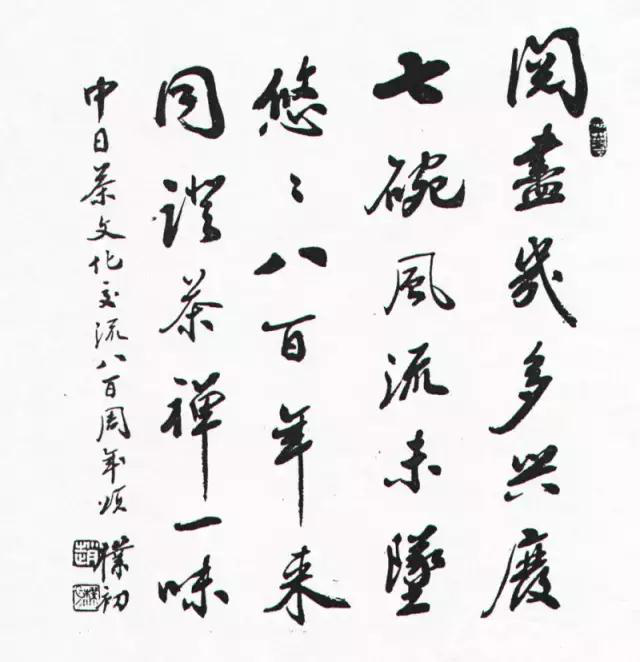 阅盡幾多兴廢
七碗風流未墜
悠〻八百年来
同證茶禪一味
中日茶文化交流八百周年頌
樸初
趙